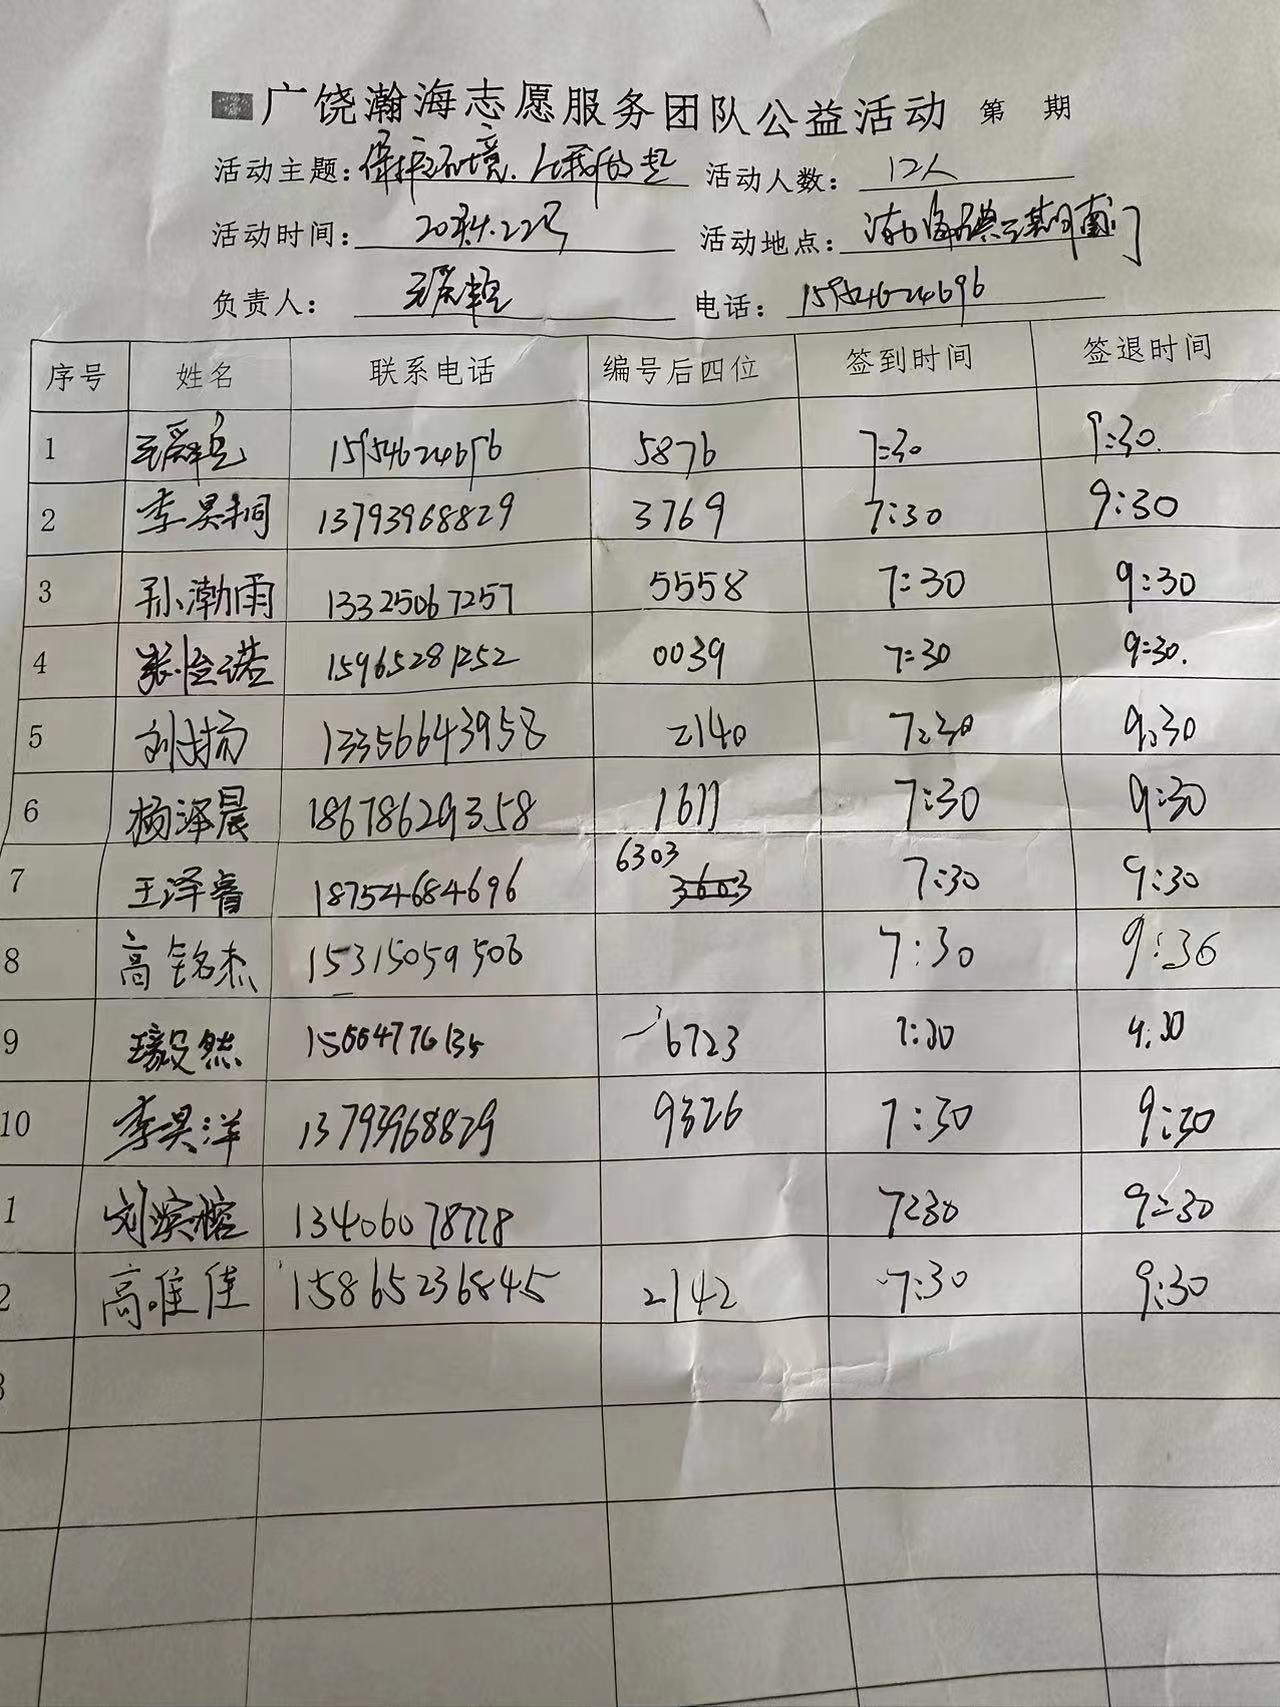 广饶瀚海志愿服务团队公益活动 第 期
活动主题:保护环境.从我做起 活动人数: 12人
活动时间: 4.22号 活动地点: 渤海 南门
负责人: 电话: 15954624696
序号 姓名 联系电话 编号后四位 签到时间 签退时间
1 15954624696 5876 7:30 9:30.
2 李昊桐 13793968829 3769 7:30 9:30
3 孙渤雨 13325067257 5558 7:30 9:30
4 张怡诺 15965281252 0039 7:30 9:30.
5 刘扬 13356643958 2140 7:30 9:30
6 杨泽晨 18678629358 1611 7:30 9:30
7 王泽睿 18754684696 6303 3603 7:30 9:30
8 高铭杰 15315059506 7:30 9:36
9 毅然 15664776135 6723 7:30 9:30
10 李昊洋 13793968829 9326 7:30 9:30
1 刘滨榕 13406078778 7:30 9:30
2 高唯佳 15865236845 2142 7:30 9:30
3